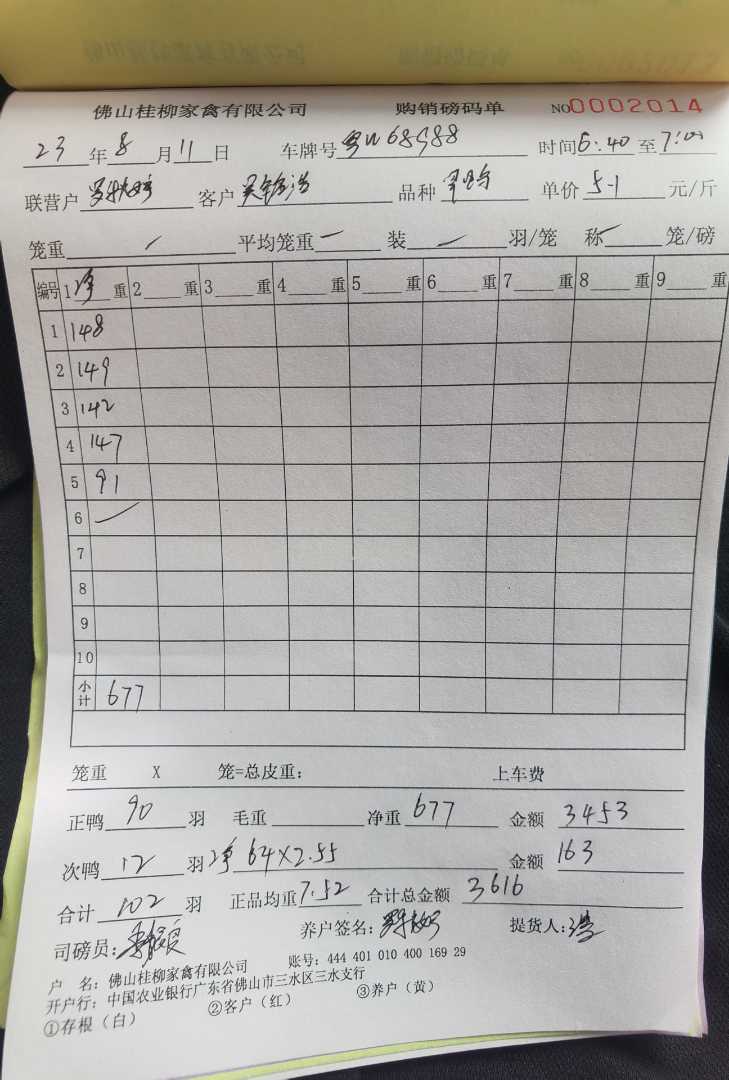 佛山桂柳家禽有限公司 购销磅码单 NO0002014
23年8月11日 车牌号 68988 时间6:40至7:00
联营户 客户 品种 单价5.1元/斤
笼重 / 平均笼重 — 装 — 羽/笼 称 — 笼/磅
编号 1净重 2 重 3 重 4 重 5 重 6 重 7 重 8 重 9 重
1 148
2 149
3 142
4 147
5 91
6 —
7
8
9
10
小计 677
笼重 X 笼=总皮重: 上车费
正鸭90羽 毛重 净重677 金额3453
次鸭12羽 净64×2.55 金额163
合计102羽 正品均重7.52 合计总金额3616
司磅员: 养户签名: 提货人:
户 名:佛山桂柳家禽有限公司 账号:444 401 010 400 169 29
开户行:中国农业银行广东省佛山市三水区三水支行
①存根(白) ②客户(红) ③养户(黄)